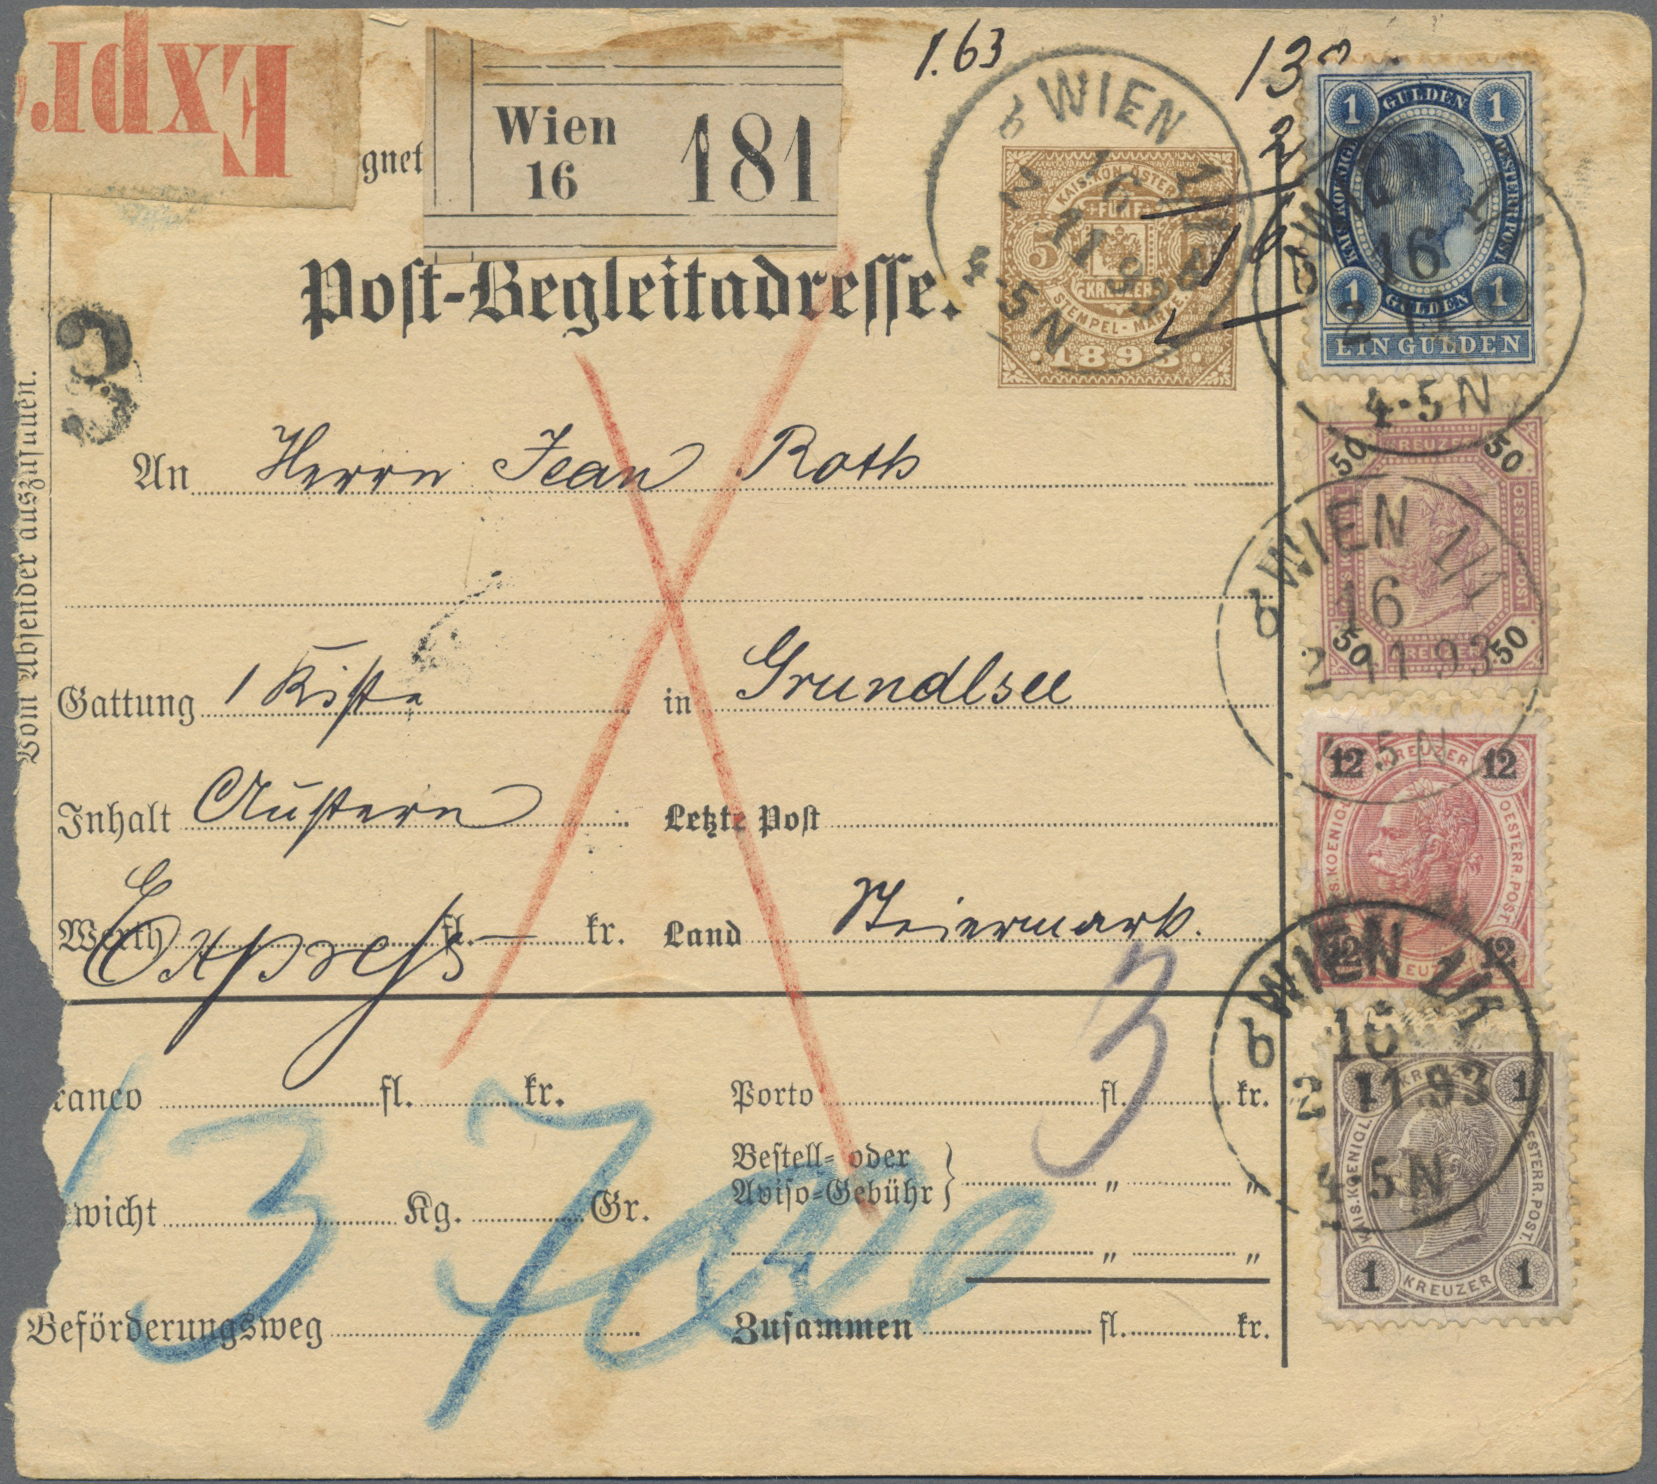 Expr.
gnet
Wien
16
181
1.63
Post-Begleitadresse.
KAIS. KÖN. ÖSTERR.
FÜNF
5
KREUZER
STEMPEL-MARKE.
1893
b WIEN 1/1
16
2 11 93
4-5N
1 GULDEN 1
KAIS. KOENIGL. OESTERR. POST.
1 GULDEN 1
EIN GULDEN
b WIEN 1/1
16
2 11
4-5N
3
Vom Absender auszufüllen.
An Herrn Jean Roth
50 KREUZER 50
OESTERR. POST
50 KREUZER 50
b WIEN 1/1
16
2 11 93
4-5N
Gattung 1 Kiste in Grundlsee
Inhalt Austern Letzte Post
12 KREUZER 12
KAIS. KOENIGL. OESTERR. POST.
12 KREUZER 12
Werth fl. kr. Land Steiermark.
Express
b WIEN 1/1
16
2 11 93
4-5N
3
ranco fl. kr. Porto fl. kr.
Bestell- oder
Aviso-Gebühr } " "
wicht Kg. Gr.
" "
3 7
Beförderungsweg Zusammen fl. kr.
1 KREUZER 1
KAIS. KOENIGL. OESTERR. POST.
1 KREUZER 1